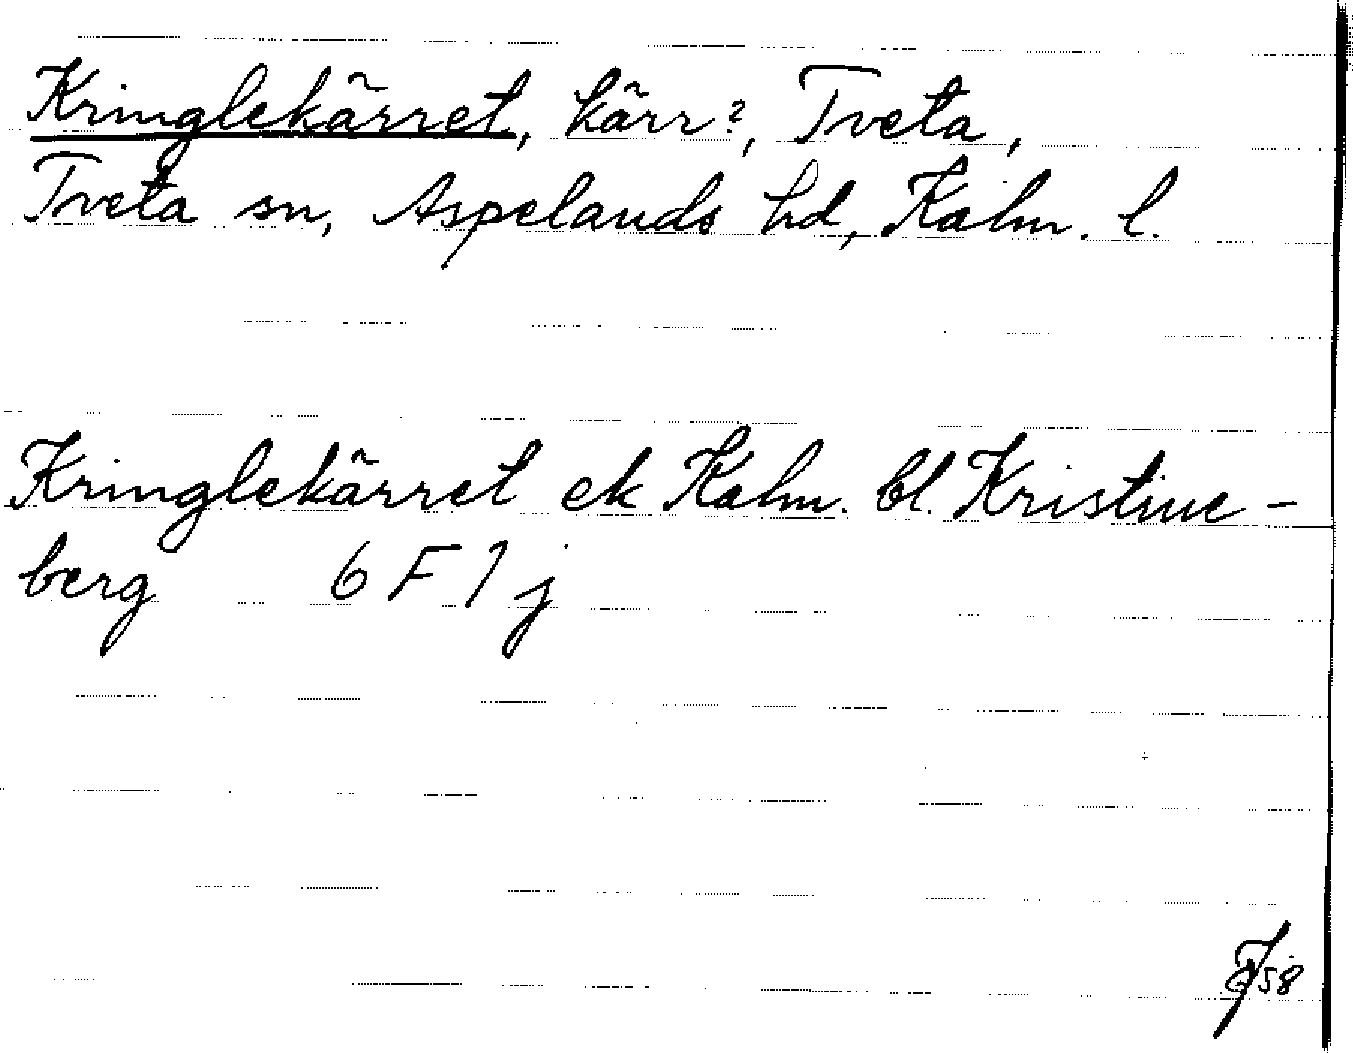 Kringlekärret, kärr?, Tveta,
Tveta sn, Aspelands hd, Kalm. l.
Kringlekärret ek Kalm. bl. Kristine-
berg 6 F 7 j
58